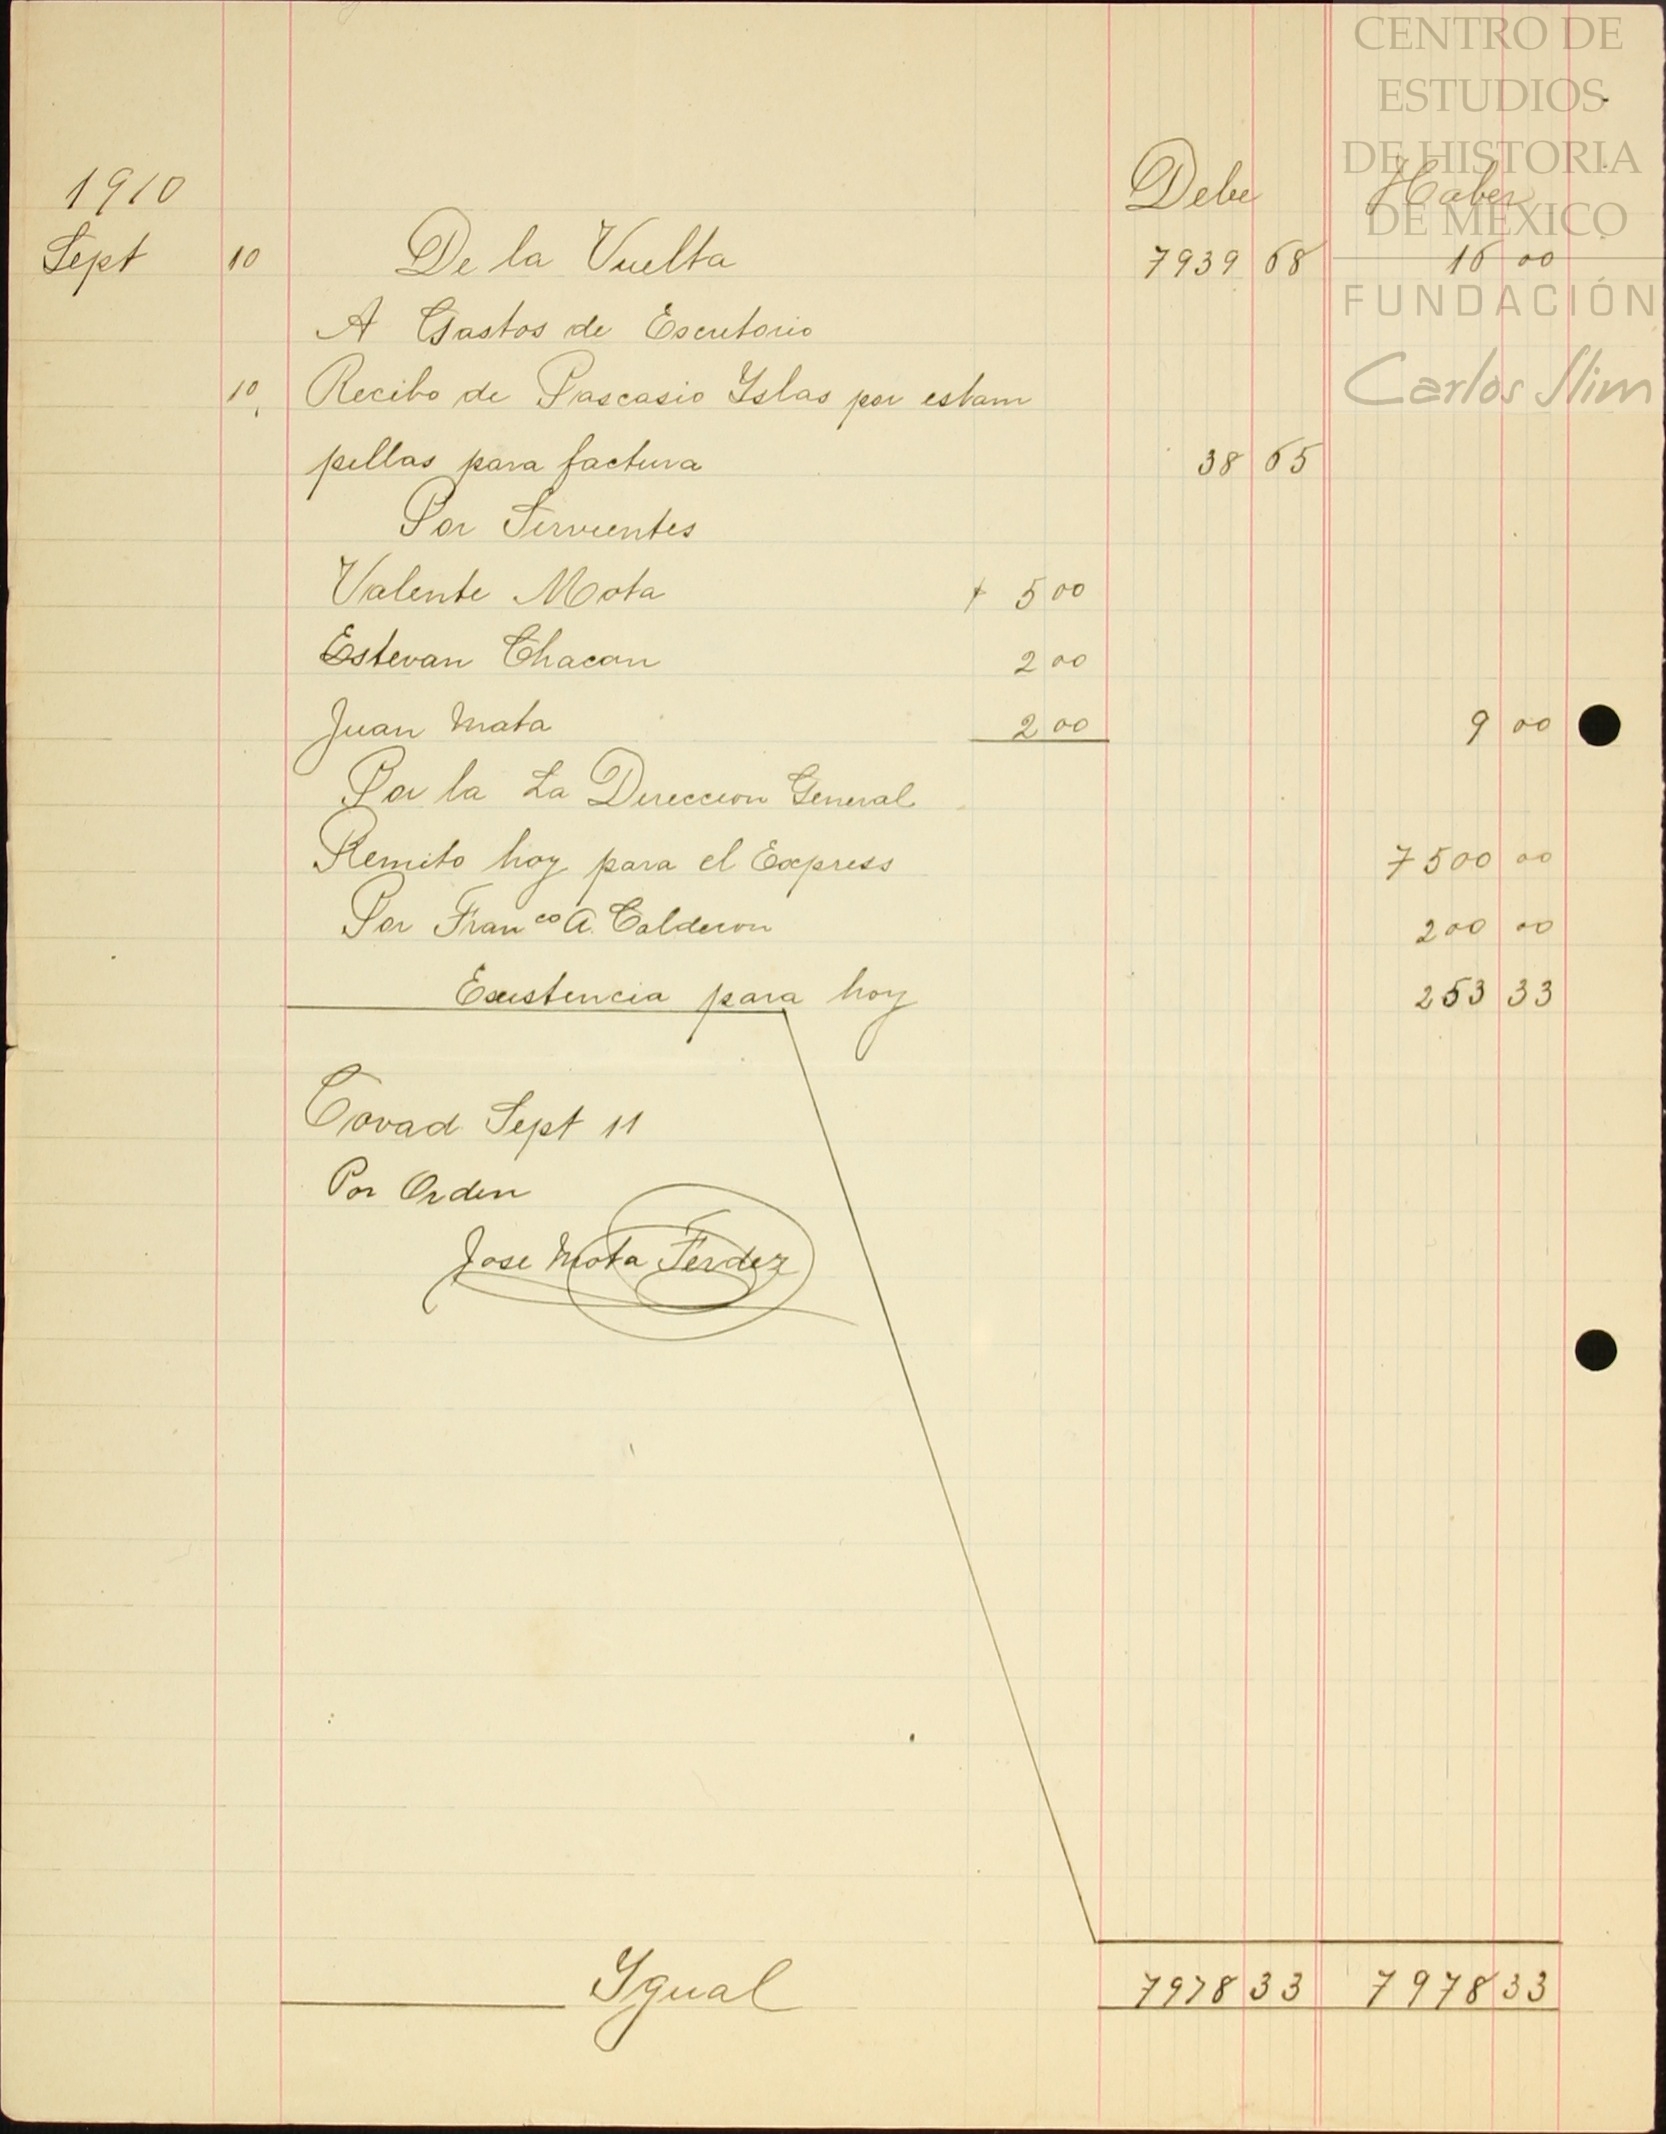 CENTRO DE
ESTUDIOS
DE HISTORIA
DE MÉXICO
FUNDACIÓN
Carlos Slim
1910 Debe Haber
Sept 10 De la Vuelta 7939 68 16 00
A Gastos de Escritorio
10, Recibo de Pascasio Yslas por estam
pillas para factura 38 65
Por Sirvientes
Valente Mota $ 5 00
Estevan Chacon 2 00
Juan Mata 2 00 9 00
Por la La Direccion General
Remito hoy para el Express 7500 00
Por Fran co A. Calderon 200 00
Existencia para hoy 253 33
Sept 11
Por Orden
Jose Mota Ferdez
Ygual 7978 33 7978 33